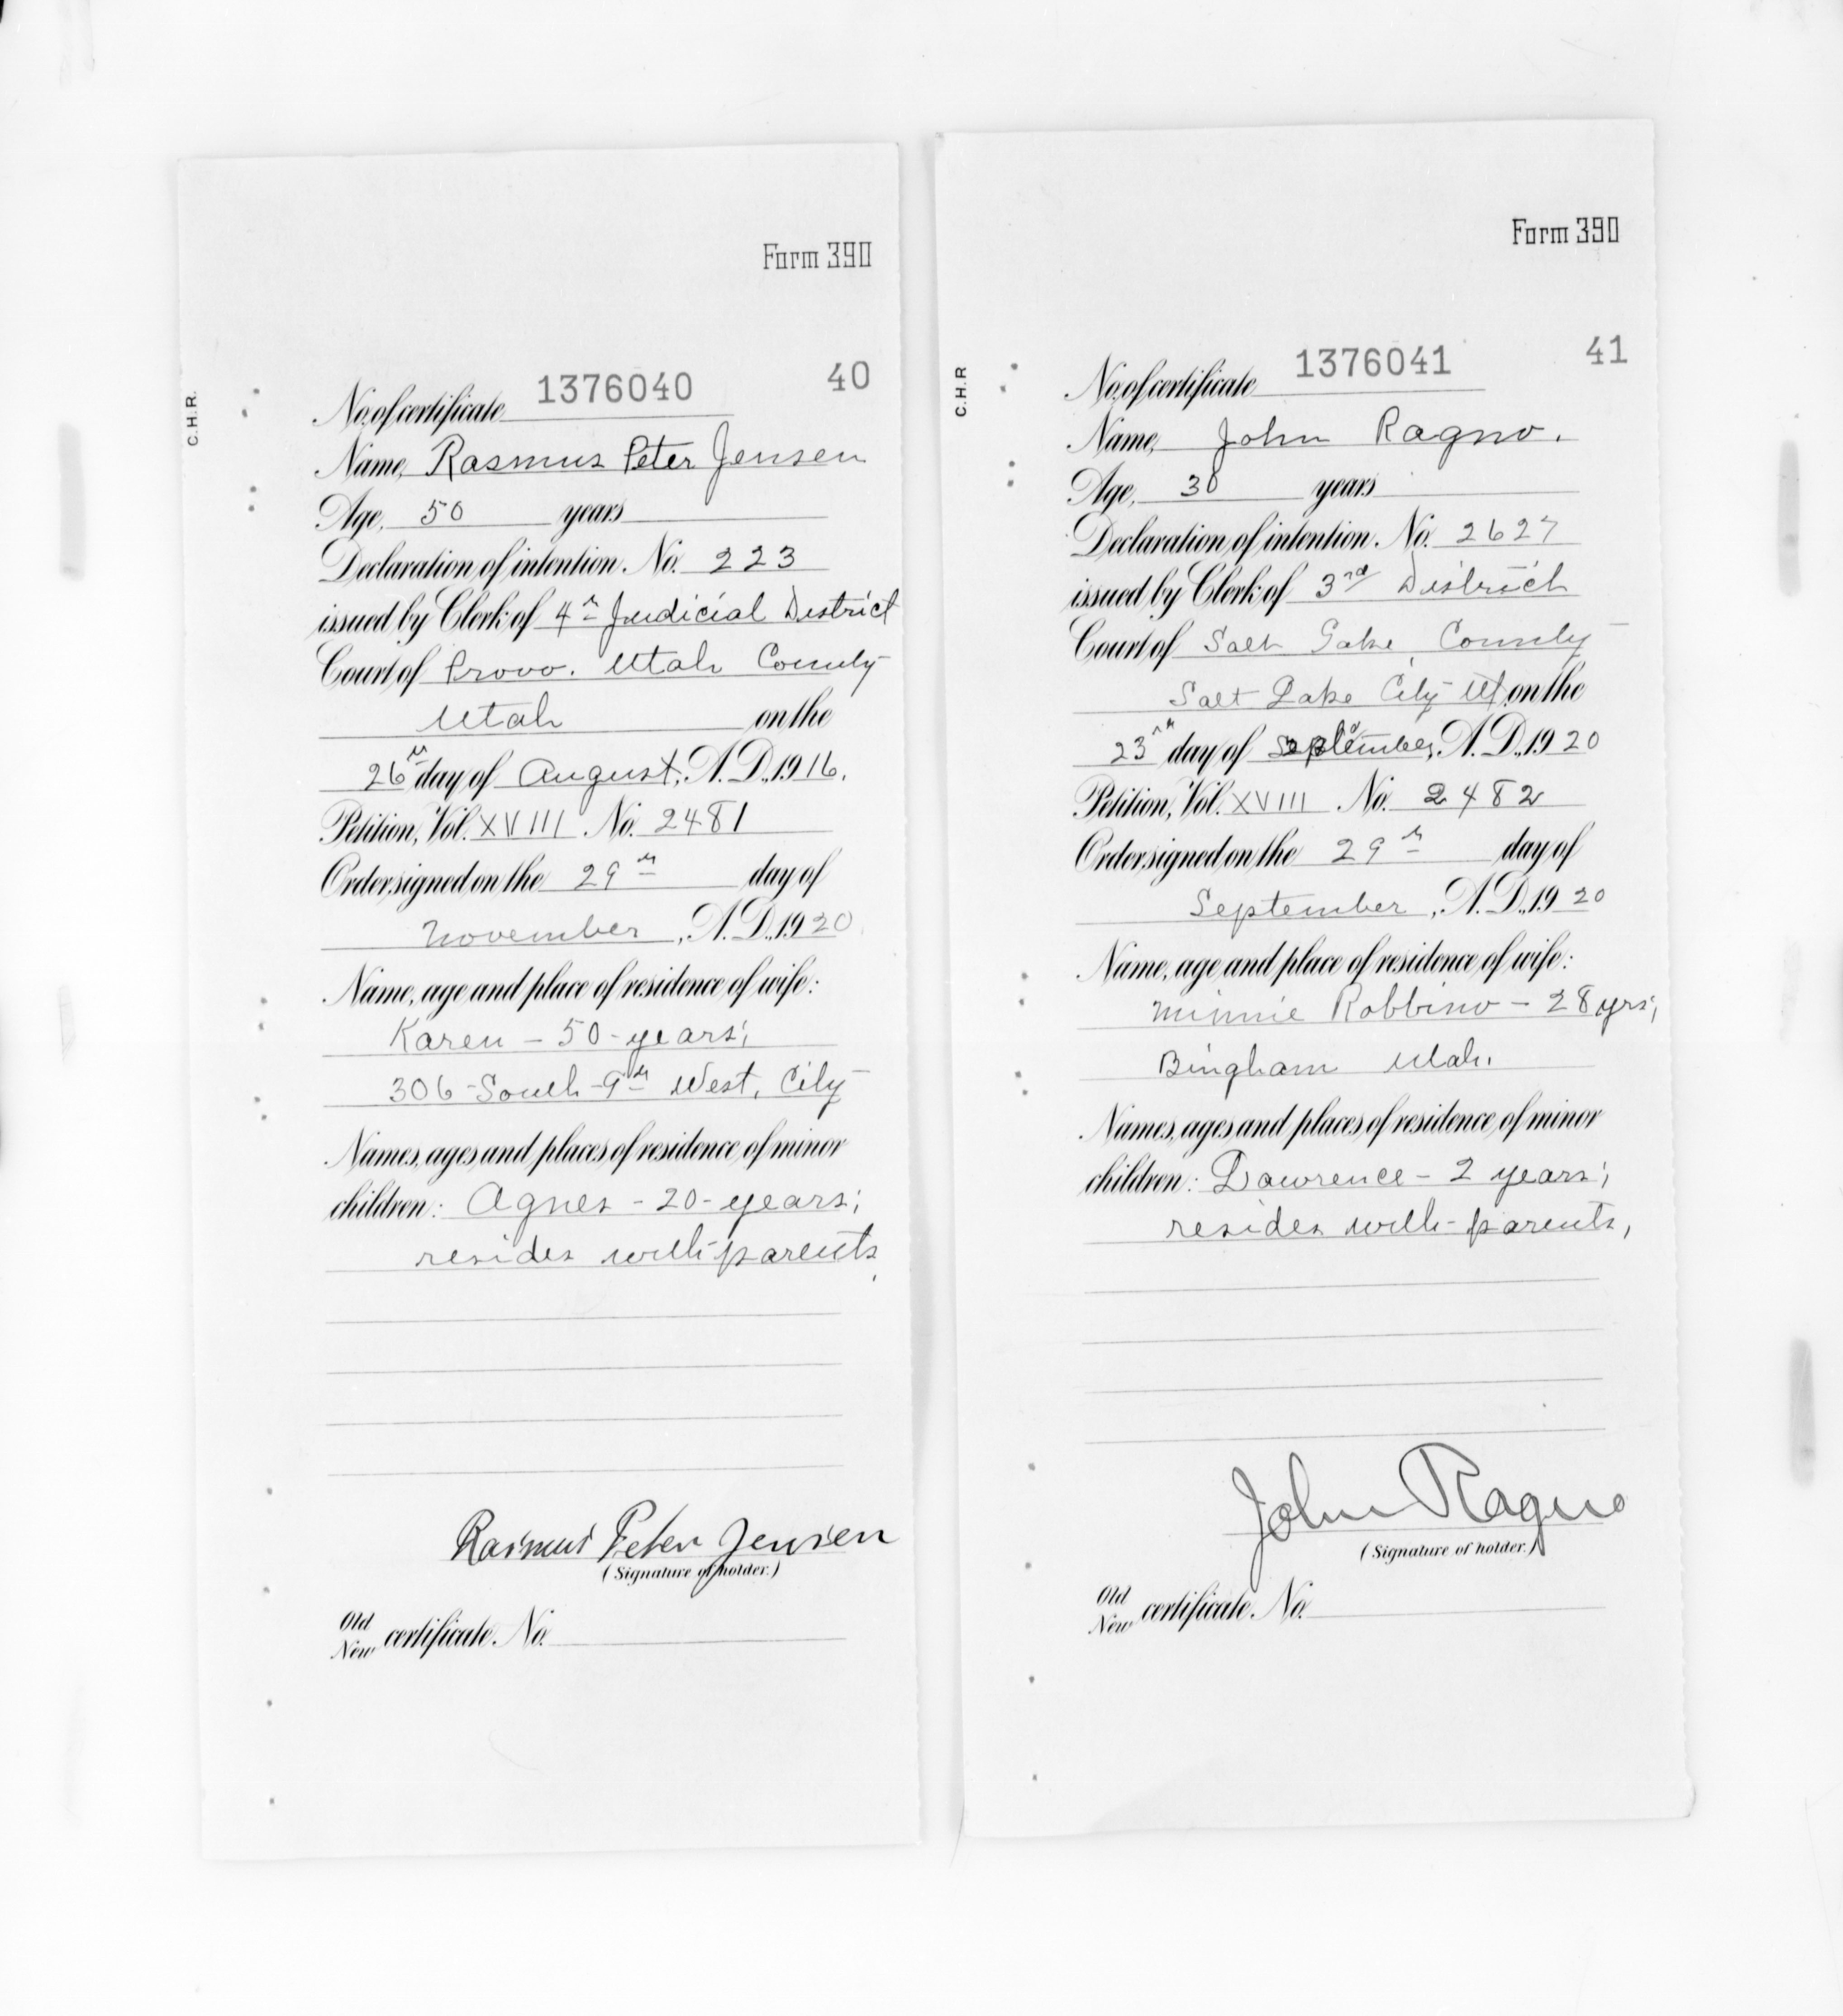 Form 390
C.H.R.
1376040 40
No. of certificate
Name, Rasmus Peter Jensen
Age, 50 years
Declaration of intention. No. 223
issued by Clerk of 4th Judicial District
Court of Provo. Utah County
Utah on the
26th day of August, A.D., 1916.
Petition, Vol. XVIII No. 2481
Order signed on the 29th day of
November, A.D., 1920
Name, age and place of residence of wife:
Karen - 50 - years;
306 - South - 9th West, City
Names, ages and places of residence of minor
children: Agnes - 20 - years;
resides with parents,
Rasmus Peter Jensen
(Signature of holder.)
Old
New certificate. No.
Form 390
C.H.R
1376041 41
No. of certificate
Name, John Ragno.
Age, 30 years
Declaration of intention. No. 2627
issued by Clerk of 3rd District
Court of Salt Lake, County
Salt Lake City Ut on the
23rd day of September, A.D., 1920
Petition, Vol. XVIII No. 2482
Order signed on the 29th day of
September, A.D., 1920
Name, age and place of residence of wife:
Minnie Robbino - 28 yrs;
Bingham Utah.
Names, ages and places of residence of minor
children: Lawrence - 2 years;
resides with - parents,
John Ragno
(Signature of holder.)
Old
New certificate. No.